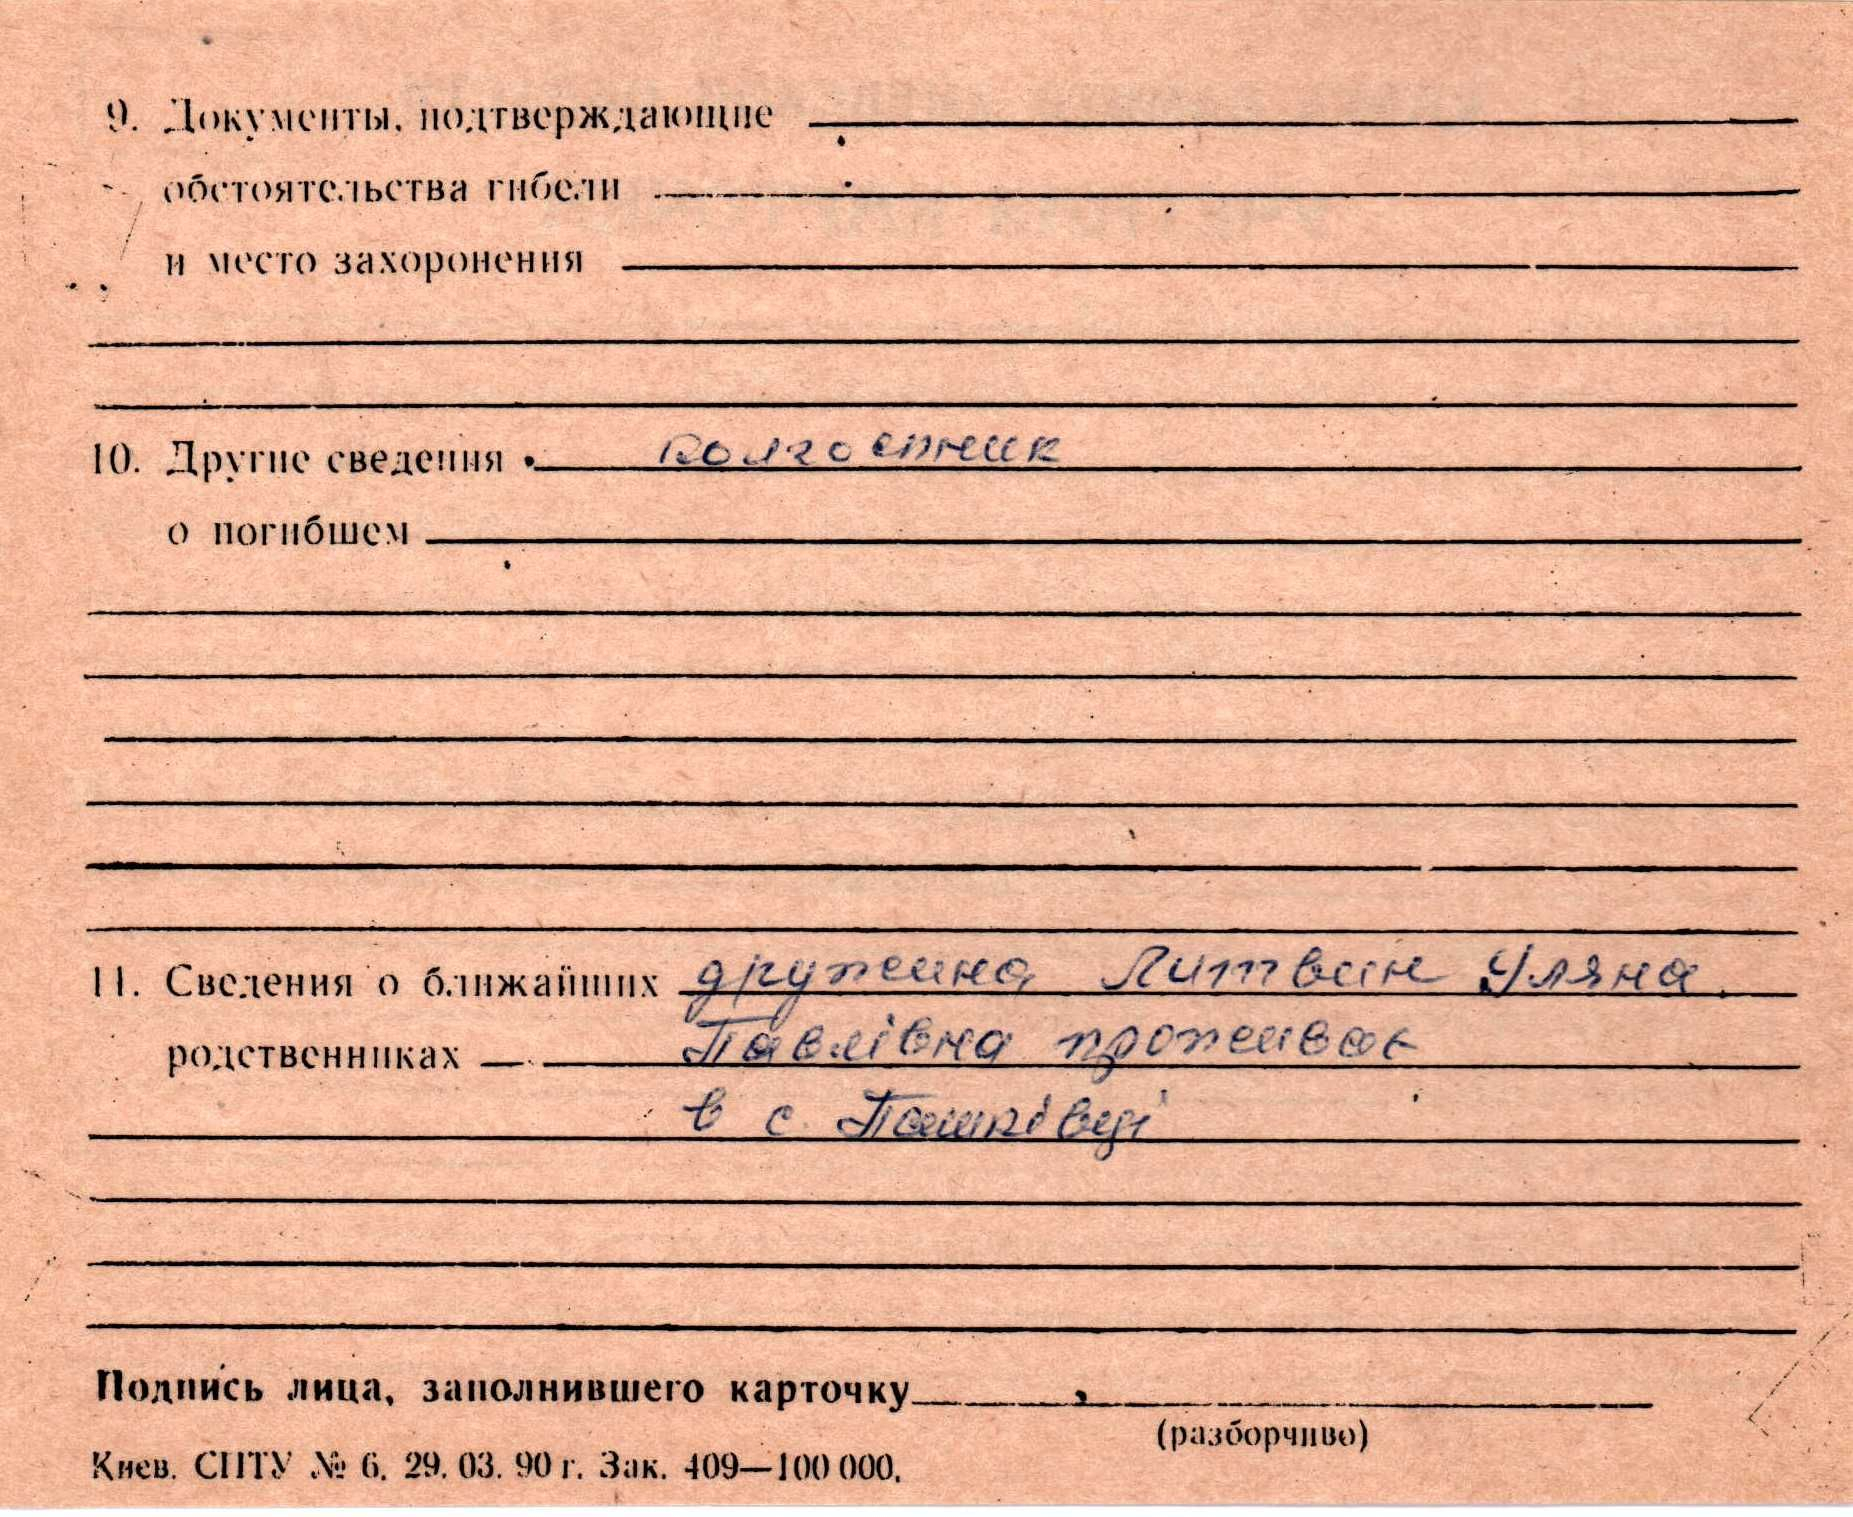 9. Документы, подтверждающие
обстоятельства гибели
и место захоронения
10. Другие сведения колгоспник
о погибшем
11. Сведения о ближайших дружина Литвин Уляна
родственниках Павлівна проживає
в с. Пашківці
Подпись лица, заполнившего карточку
(разборчиво)
Киев. СПТУ № 6. 29. 03. 90 г. Зак. 409—100 000.